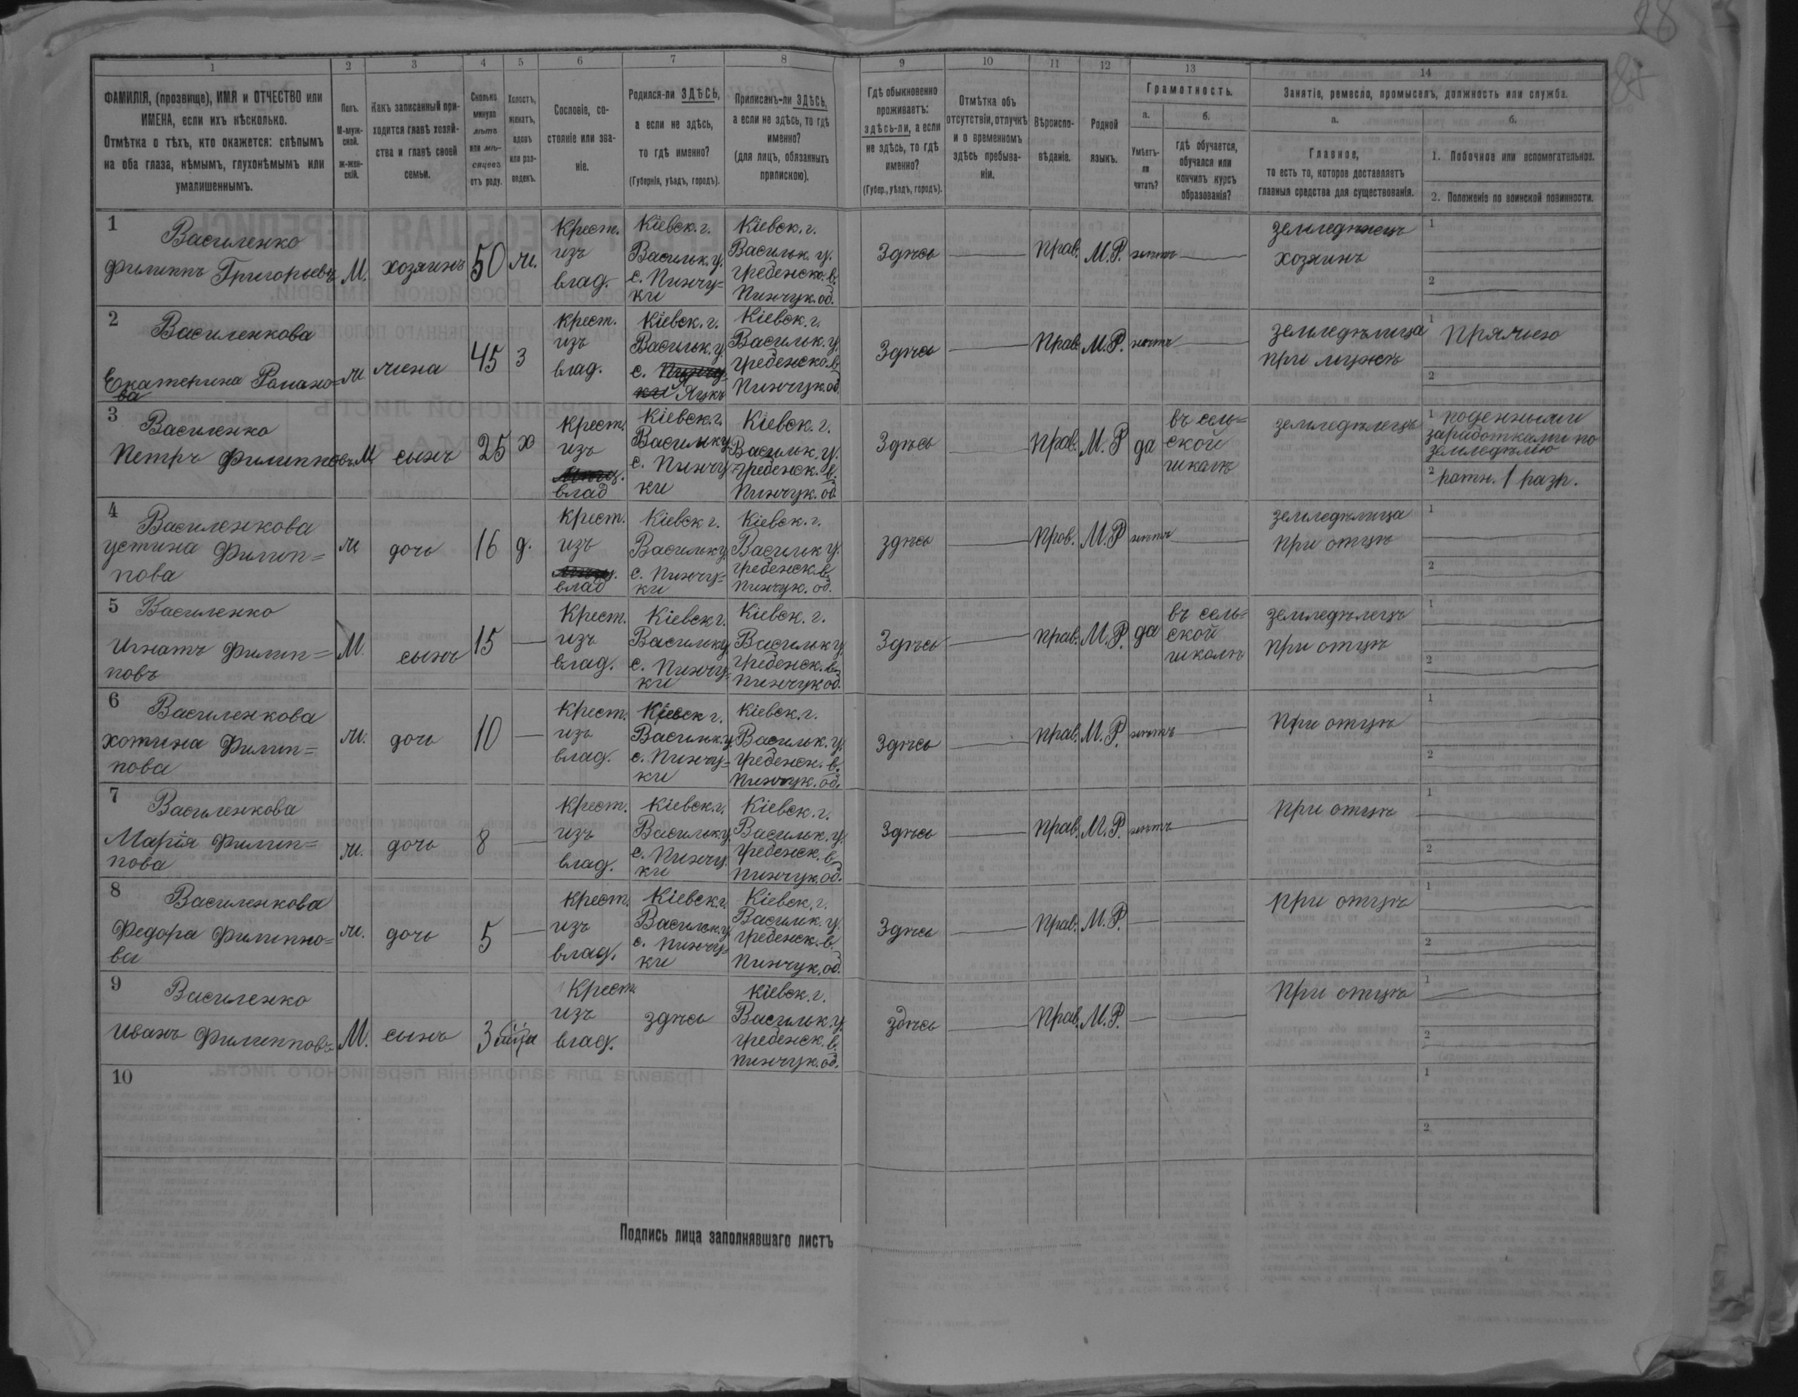 28
1 2 3 4 5 6 7 8 9 10 11 12 13 14
ФАМИЛІЯ, (прозвище), ИМЯ и ОТЧЕСТВО или
ИМЕНА, если ихъ нѣсколько.
Отмѣтка о тѣхъ, кто окажется: слѣпымъ
на оба глаза, нѣмымъ, глухонѣмымъ или
умалишеннымъ.
Полъ.
М-муж-
ской.
ж-жен-
скій.
Какъ записанный при-
ходится главѣ хозяй-
ства и главѣ своей
семьи.
Сколько
минуло
лѣтъ
или мѣ-
сяцевъ
отъ роду.
Холостъ,
женатъ,
вдовъ
или раз-
веденъ.
Сословіе, со-
стояніе или зва-
ніе.
Родился-ли ЗДѢСЬ,
а если не здѣсь,
то гдѣ именно?
(Губернія, уѣздъ, городъ).
Приписанъ-ли ЗДѢСЬ,
а если не здѣсь, то гдѣ
именно?
(для лицъ, обязанныхъ
припискою).
Гдѣ обыкновенно
проживаетъ:
здѣсь-ли, а если
не здѣсь, то гдѣ
именно?
(Губер., уѣздъ, городъ).
Отмѣтка объ
отсутствіи, отлучкѣ
и о временномъ
здѣсь пребыва-
ніи.
Вѣроиспо-
вѣданіе.
Родной
языкъ.
Грамотность.
а.
Умѣетъ-
ли
читать?
б.
гдѣ обучается,
обучался или
кончилъ курсъ
образованія?
Занятіе, ремесло, промыселъ, должность или служба.
а.
Главное,
то есть то, которое доставляетъ
главныя средства для существованія.
б.
1. Побочное или вспомогательное.
2. Положеніе по воинской повинности.
1
Василенко
Филиппъ Григорьевъ
М.
хозяинъ
50
ж.
Крест.
изъ
влад.
Кіевск. г.
Васильк. у.
с. Пинчу=
ки
Кіевск. г.
Васильк. у.
Гребенск. в.
Пинчук. об.
Здѣсь
Прав.
М.Р.
нѣтъ
земледѣлецъ
хозяинъ
1
2
2
Василенкова
Екатерина Романо=
ва
ж
жена
45
з
Крест.
изъ
влад.
Кіевск. г.
Васильк. у.
с. Пинчу
ки
Кіевск. г.
Васильк. у.
Гребенск. в.
Пинчук. об
Здѣсь
Прав.
М.Р.
нѣтъ
земледѣлица
при мужѣ
1 Прячею
2
3
Василенко
Петръ Филипповъ
М
сынъ
25
х
Крест.
изъ
влад
Кіевск. г.
Васильк у
с. Пинчу
ки
Кіевск. г.
Васильк. у.
Гребенск. в.
Пинчук. об.
Здѣсь
Прав.
М.Р
да
въ сель=
ской
школѣ
земледѣлецъ
1 поденными
заработками по
земледѣлію
2 ратн. 1 разр.
4
Василенкова
Устина Филип=
пова
ж
дочь
16
д.
Крест.
изъ
влад
Кіевск г.
Васильк у
с. Пинчу=
ки
Кіевск. г.
Васильк у.
Гребенск. в.
Пинчук. об.
здѣсь
Прав.
М.Р
нѣтъ
земледѣлица
при отцѣ
1
2
5
Василенко
Игнатъ Филип=
повъ
М.
сынъ
15
Крест.
изъ
влад.
Кіевск г.
Васильк у
с. Пинчу=
ки
Кіевск. г.
Васильк у.
Гребенск. в.
Пинчук об.
Здѣсь
прав.
М.Р.
да
въ сель=
ской
школѣ
земледѣлецъ
при отцѣ
1
2
6
Василенкова
Хотина Филип=
пова
ж.
дочь
10
Крест.
изъ
влад.
Кіевск г.
Васильк у
с. Пинчу=
ки
Кіевск. г.
Васильк. у.
Гребенск. в.
Пинчук. об.
Здѣсь
прав.
М.Р.
нѣтъ
при отцѣ
1
2
7
Василенкова
Марія Филип=
пова
ж.
дочь
8
Крест.
изъ
влад.
Кіевск. г.
Васильк у
с. Пинчу
ки
Кіевск. г.
Васильк. у.
Гребенск. в.
Пинчук. об.
Здѣсь
Прав.
М.Р.
нѣтъ
при отцѣ
1
2
8
Василенкова
Федора Филиппо=
ва
ж.
дочь
5
Крест.
изъ
влад.
Кіевск г.
Васильк у
с. Пинчу=
ки
Кіевск. г.
Васильк. у.
Гребенск. в.
Пинчук. об.
Здѣсь
Прав.
М.Р.
при отцѣ
1
2
9
Василенко
Иванъ Филипповъ
М.
сынъ
3
Крест
изъ
влад.
здѣсь
Кіевск. г.
Васильк. у.
Гребенск. в.
Пинчук. об.
здѣсь
Прав.
М.Р.
при отцѣ
1
2
10
1
2
Подпись лица заполнявшаго листъ